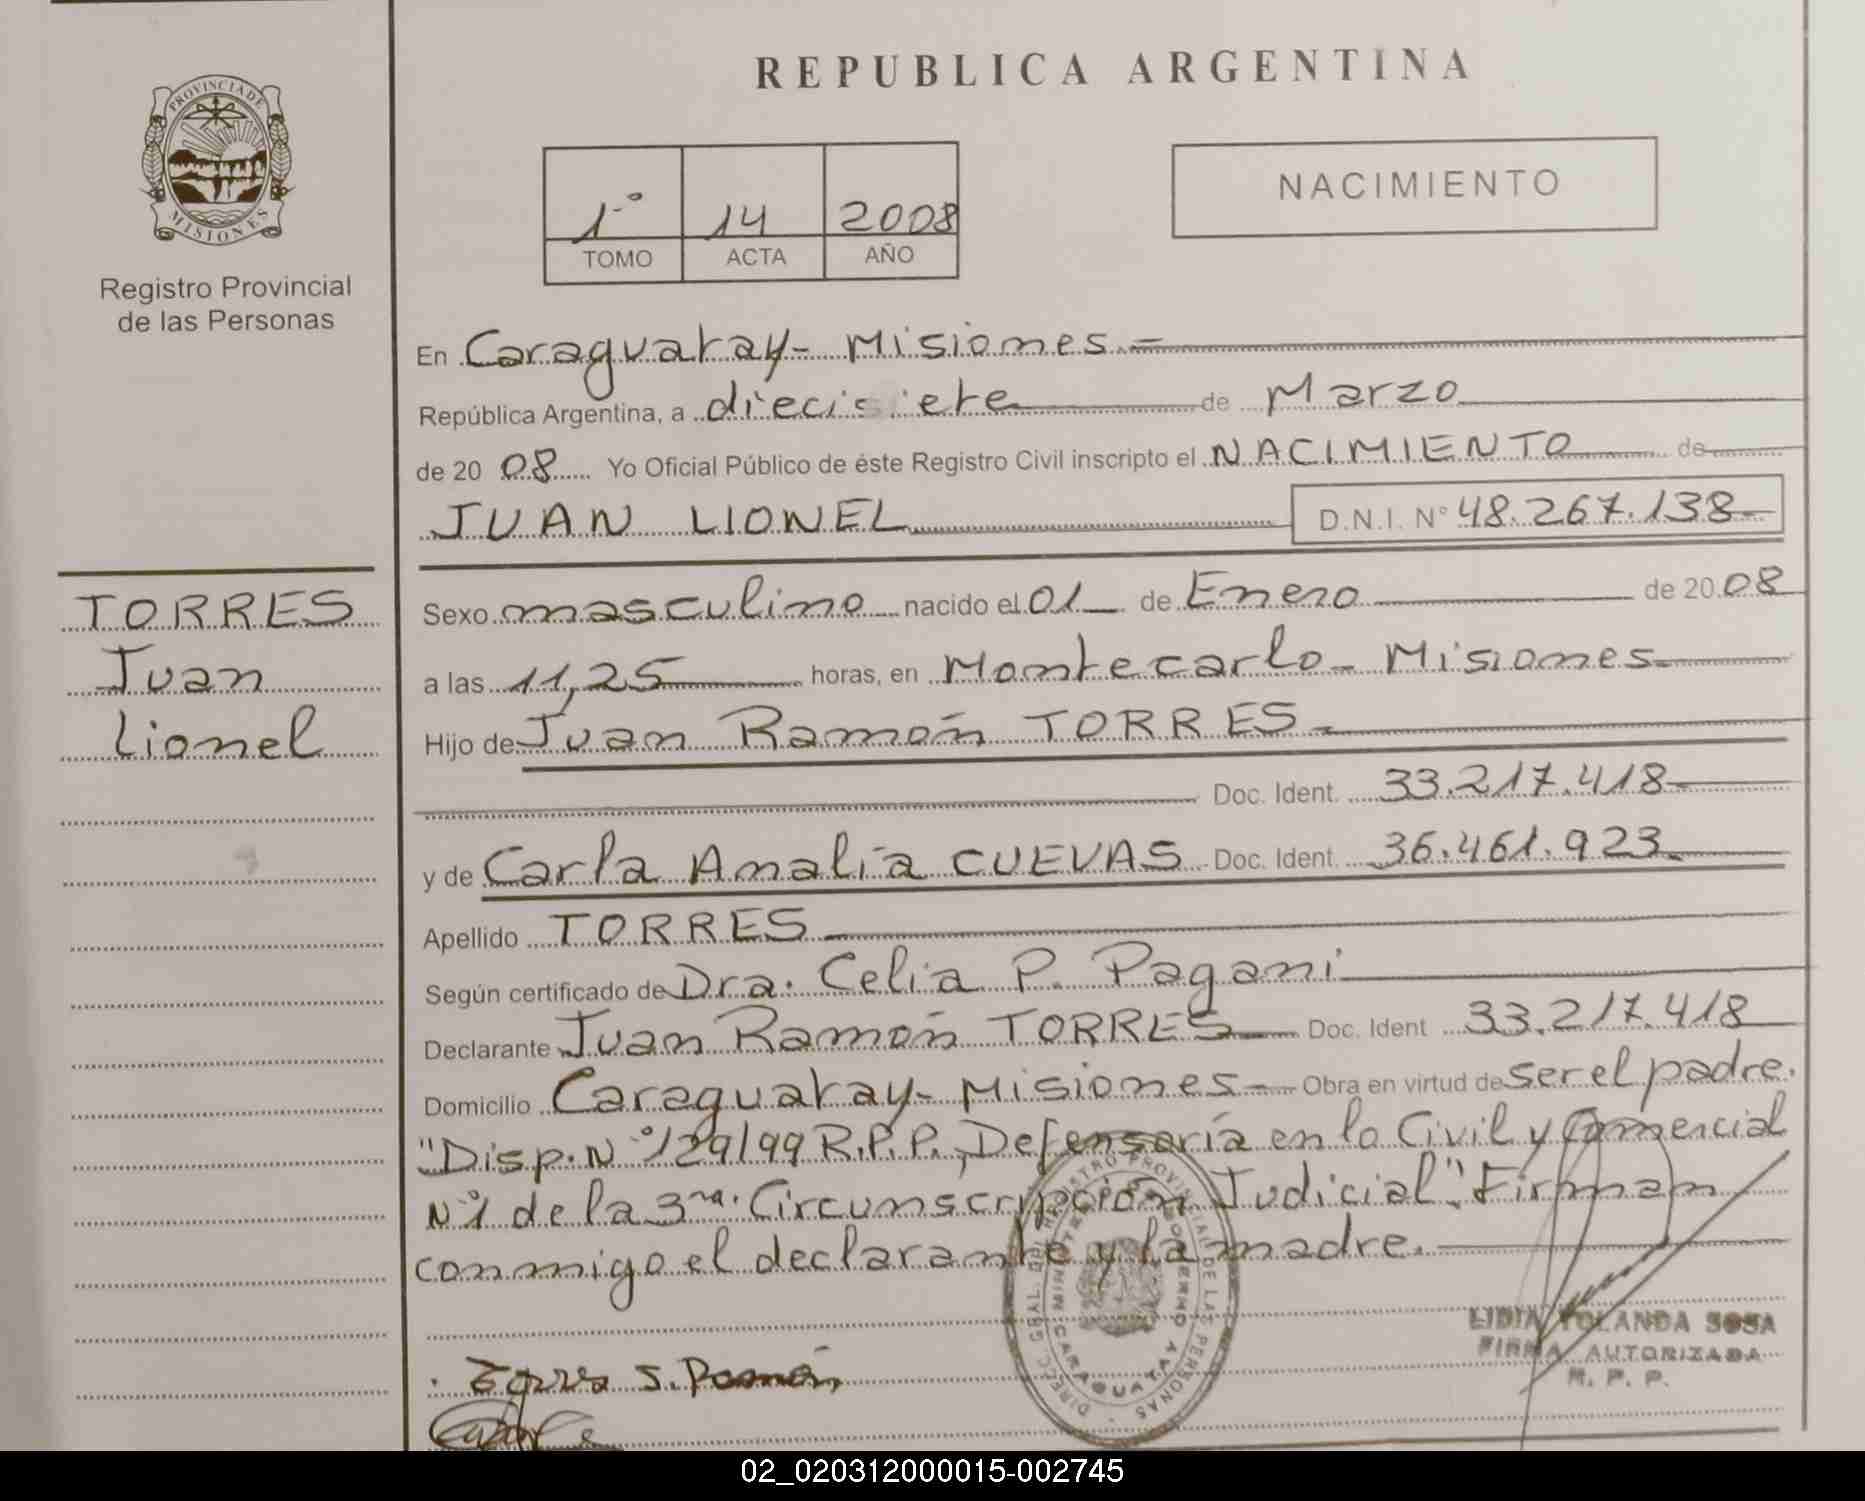 REPUBLICA ARGENTINA
PROVINCIA DE
MISIONES
Registro Provincial
de las Personas
1º 14 2008
TOMO ACTA AÑO
NACIMIENTO
TORRES
Juan
Lionel
En Caraguatay - Misiones.=
República Argentina, a diecisiete de Marzo
de 20 08 Yo Oficial Público de éste Registro Civil inscripto el NACIMIENTO de
JUAN LIONEL D.N.I. N° 48.267.138-
Sexo masculino nacido el 01 de Enero de 20 08
a las 11,25 horas, en Montecarlo - Misiones
Hijo de Juan Ramón TORRES
Doc. Ident. 33.217.418
y de Carla Amalia CUEVAS Doc. Ident. 36.461.923
Apellido TORRES
Según certificado de Dra. Celia P. Pagani
Declarante Juan Ramón TORRES Doc. Ident 33.217.418
Domicilio Caraguatay - Misiones - Obra en virtud de ser el padre.
"Disp. Nº 129/99 R.P.P., Defensoría en lo Civil y Comercial
Nº1 de la 3ra. Circunscripción Judicial". Firman
conmigo el declarante y la madre.
DIREC. GRAL. DEL REGISTRO PROVINCIAL DE LAS PERSONAS
CARAGUATAY
LIDIA YOLANDA SOSA
FIRMA AUTORIZADA
R. P. P.
Torres J. Ramón
02_020312000015-002745